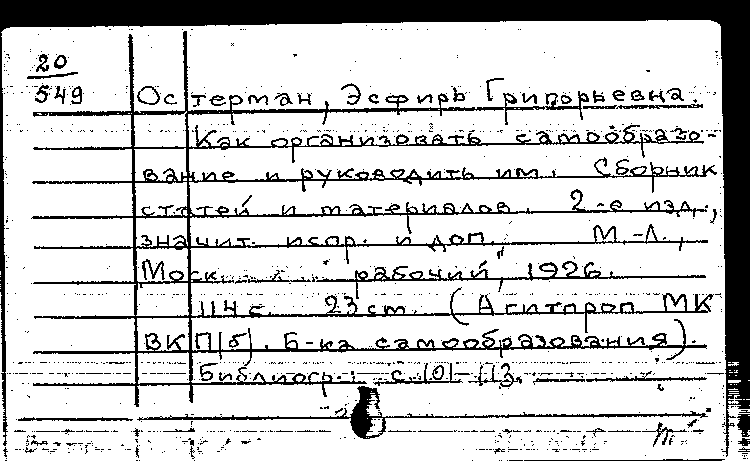 20
549
Остерман, Эсфирь Григорьевна.
Как организовать самообразо-
вание и руководить им. Сборник
статей и материалов. 2-е изд.,
значит. испр. и доп., М.-Л.,
"Моск. рабочий", 1926.
114 с. 23 см. (Агитпроп МК
ВКП(б). Б-ка самообразования).
Библиогр.: с. 101-113.